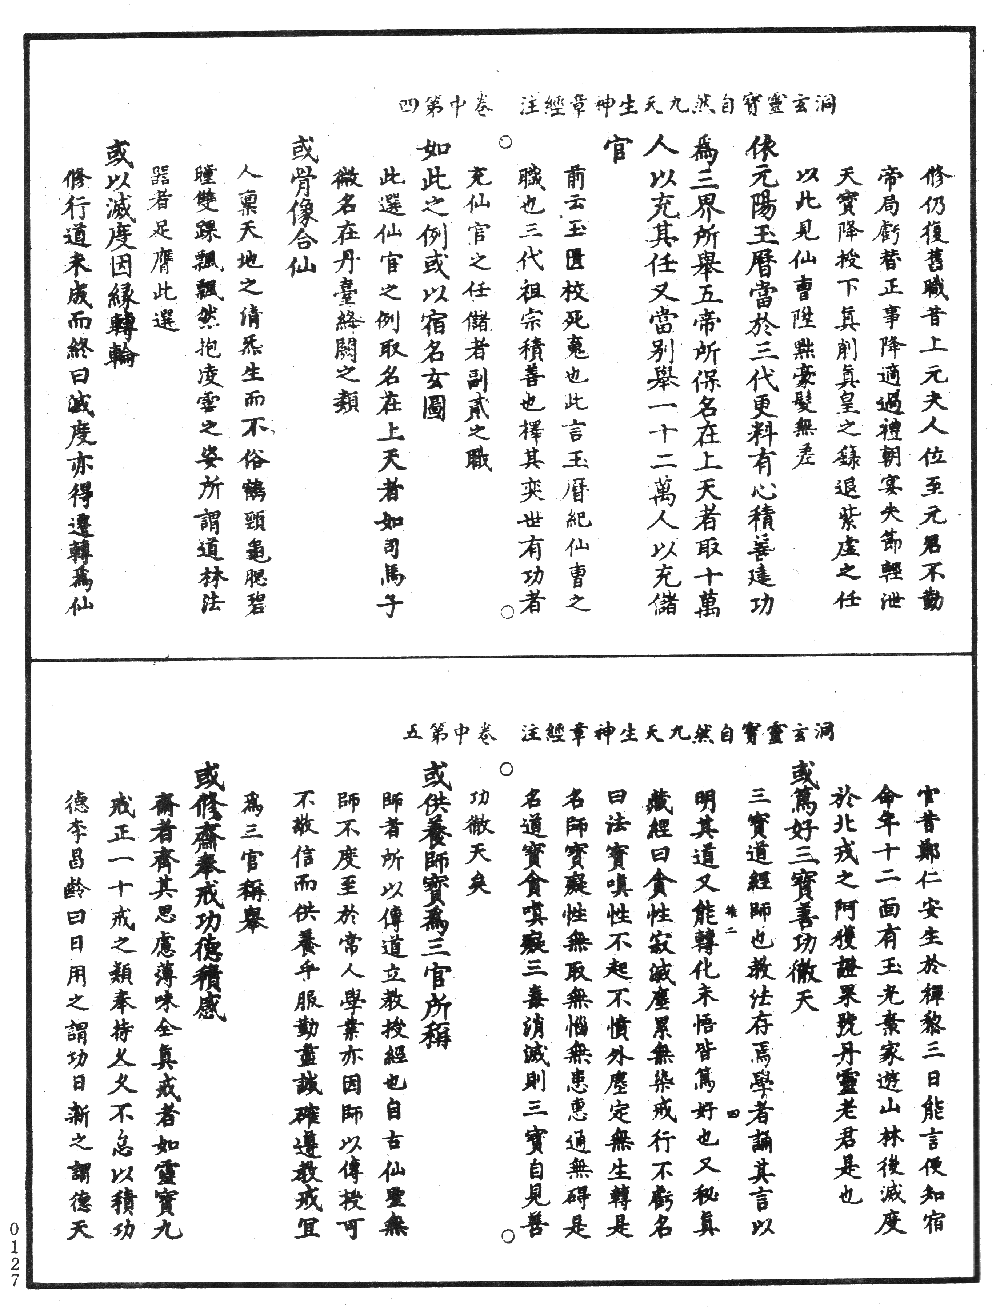 洞玄靈寶自然九天生神章經注　卷中第四
修仍復舊職昔上元夫人位至元君不勤
帝局虧替正事降適過禮朝宴失節輕泄
天寶降授下真削真皇之錄退紫虛之任
以此見仙曹陞黜豪髮無差
依元陽玉曆當於三代更料有心積善建功
爲三界所舉五帝所保名在上天者取十萬
人以充其任又當别舉一十二萬人以充儲
官
前云玉匱校死䰟也此言玉曆紀仙曹之
職也三代祖宗積善也擇其奕世有功者
充仙官之任儲者副貳之職
如此之例或以宿名玄圖
此選仙官之例取名在上天者如司馬子
微名在丹臺絳闕之類
或骨像合仙
人稟天地之清炁生而不俗鶴頸龜腮碧
瞳雙踝飄飄然抱凌雲之姿所謂道林法
器者足膺此選
或以滅度因緣轉輪
修行道未成而終曰滅度亦得遷轉爲仙
洞玄靈寶自然九天生神章經注　卷中第五
官昔鄭仁安生於禪黎三日能言便知宿
命年十二面有玉光棄家遊山林後滅度
於北戎之阿獲證果號丹靈老君是也
或篤好三寶善功徹天
三寶道經師也教法存焉學者誦其言以
明其道又能轉化未悟皆篤好也又秘真
藏經曰貪性寂滅塵累無染戒行不虧名
曰法寶嗔性不起不憤外塵定無生轉是
名師寶癡性無取無惱無恚惠通無碍是
名道寶貪嗔癡三毒消滅則三寶自見善
功徹天矣
或供養師寶爲三官所稱
師者所以傳道立教授經也自古仙聖無
師不度至於常人學業亦因師以傳授可
不敬信而供養乎服勤盡誠確遵教戒宜
爲三官稱舉
或修齋奉戒功德積感
齋者齊其思慮薄味全真戒者如靈寶九
戒正一十戒之類奉持乂久不怠以積功
德李昌齡曰日用之謂功日新之謂德天
四
0127